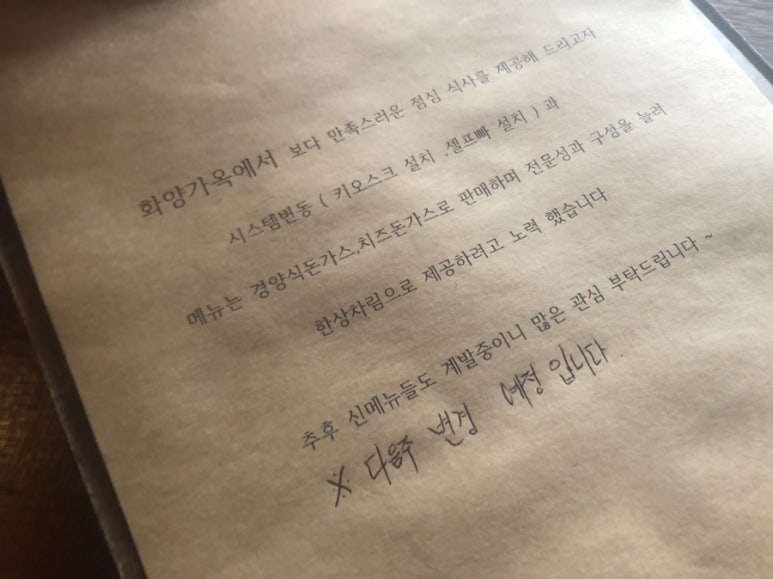 화양가옥에서 보다 만촉스러운 점심 식사를 제공해 드리고자
시스템변동 ( 키오스크 설치 ,셀프빠 설치 ) 과
메뉴는 경양식돈가스,치즈돈가스로 판매하며 전문성과 구성을 늘려
한상차림으로 제공하려고 노력 했습니다
추후 신메뉴들도 계발중이니 많은 관심 부탁드립니다 ~
※ 다음주 변경 예정 입니다.